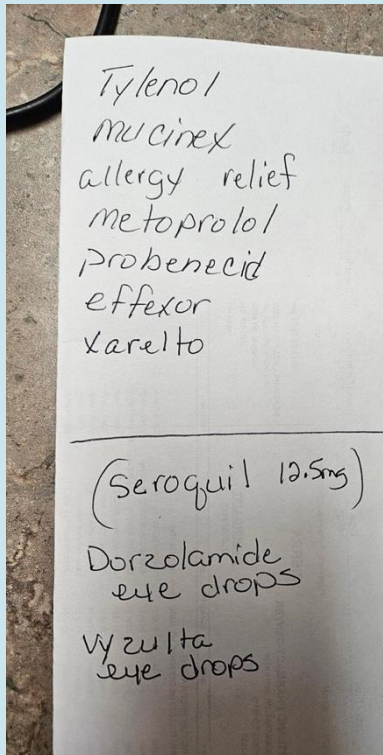 Tylenol
mucinex
allergy relief
metoprolol
probenecid
effexor
xarelto
(Seroquil 12.5mg)
Dorzolamide
eye drops
Vyzulta
eye drops